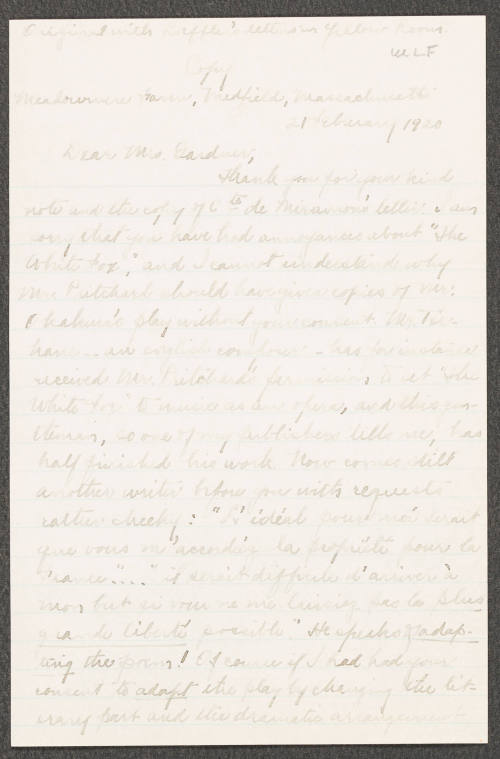 Original with Loeffler's letters in Yellow Room.
MLF
Copy
Meadowmere Farm, Medfield, Massachusetts
21 February 1920
Dear Mrs. Gardner,
Thank you for your kind
note and the copy of Cte de Miramon's letter. I am
sorry that you have had annoyances about "The
White Fox", and I cannot understand why
Mr. Pritchard should have given copies of Mr.
Okakura's play without your consent. Mr.
- an english composer - has for instance
received Mr. Pritchard's permission to set "The
White Fox" to music as an opera, and this
so one of my publishers tells me, has
half finished his work. Now comes still
another writer before you with requests
rather cheeky: "L'idéal pour moi serait
que vous m'accordiez la propriété pour la
France"...." il serait difficile d'arriver à
mon but si vous ne me laissiez pas la plus
grande liberté possible." He speaks of adap-
ting the poem! Of course if I had had your
consent to adapt the play by changing the lit-
erary part and the dramatic arrangement